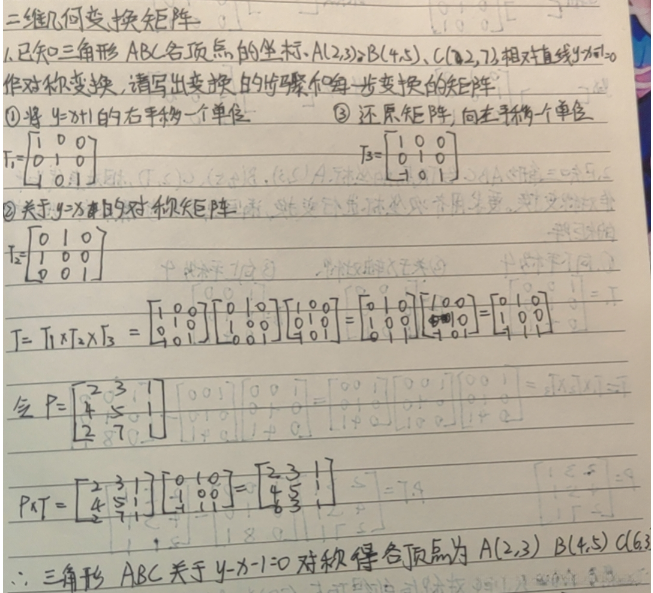 二维几何变换矩阵
1.已知三角形ABC各顶点的坐标、A(2,3)、B(4,5)、C(2,7),相对直线y-x-1=0
作对称变换,请写出变换的步骤和每一步变换的矩阵
①将y=x+1的右平移一个单位 ③还原矩阵,向左平移一个单位
T₁=[1 0 0; 0 1 0; 1 0 1] T₃=[1 0 0; 0 1 0; -1 0 1]
②关于y=x的对称矩阵
T₂=[0 1 0; 1 0 0; 0 0 1]
T=T₁×T₂×T₃=[1 0 0; 0 1 0; 1 0 1][0 1 0; 1 0 0; 0 0 1][1 0 0; 0 1 0; -1 0 1]=[0 1 0; 1 0 0; 0 1 1][1 0 0; 0 1 0; -1 0 1]=[0 1 0; 1 0 0; -1 1 1]
令P=[2 3 1; 4 5 1; 2 7 1]
P×T=[2 3 1; 4 5 1; 2 7 1][0 1 0; 1 0 0; -1 1 1]=[2 3 1; 4 5 1; 6 3 1]
∴三角形ABC关于y-x-1=0对称得各顶点为A(2,3) B(4,5) C(6,3